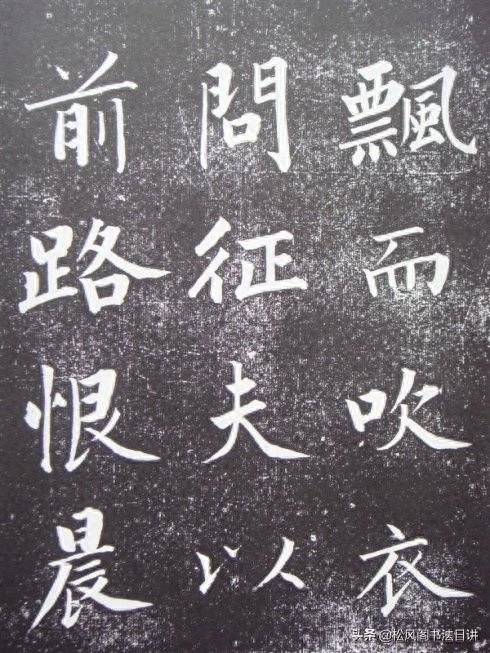 飄而吹衣
問征夫以
前路恨晨
头条@松风阁书法日讲